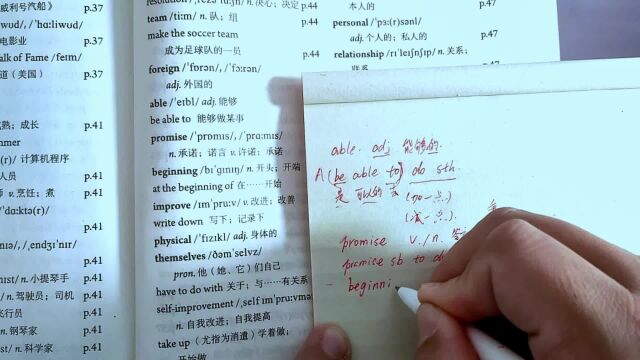 威利号汽船》 p.37
电影业 p.37
Walk of Fame /
道（美国） p.37
成长 p.41
计算机程序
人员 p.41
v. 烹饪；煮 p.41
p.41
n. 小提琴手 p.41
n. 驾驶员；司机 p.41
飞行员 p.41
n. 钢琴家 p.41
n. 科学家 p.41
n. 决心；决定 p.44
team /tiːm/ n. 队；组
make the soccer team
成为足球队的一员 p.44
foreign /ˈfɒrən/, /ˈfɔːrən/
adj. 外国的
able /ˈeɪbl/ adj. 能够
be able to 能够做某事
promise /ˈprɒmɪs/, /ˈprɑːmɪs/
n. 承诺；诺言 v. 许诺；承诺
beginning /bɪˈɡɪnɪŋ/ n. 开头；开端
at the beginning of 在……开始
improve /ɪmˈpruːv/ v. 改进；改善
write down 写下；记录下
physical /ˈfɪzɪkl/ adj. 身体的
themselves /ðəmˈselvz/
pron. 他（她、它）们自己
have to do with 关于；与……有关系
self-improvement
n. 自我改进；自我提高
take up （尤指为消遣）学着做；
开始做
本人的 p.47
personal /ˈpɜː(r)sənl/
adj. 个人的；私人的 p.47
relationship /rɪˈleɪʃnʃɪp/ n. 关系；
联系 p.47
able. adj 能够的.
A (be able to) do sth.
是 可以的 去
promise v./n.
promise sb to do
beginni